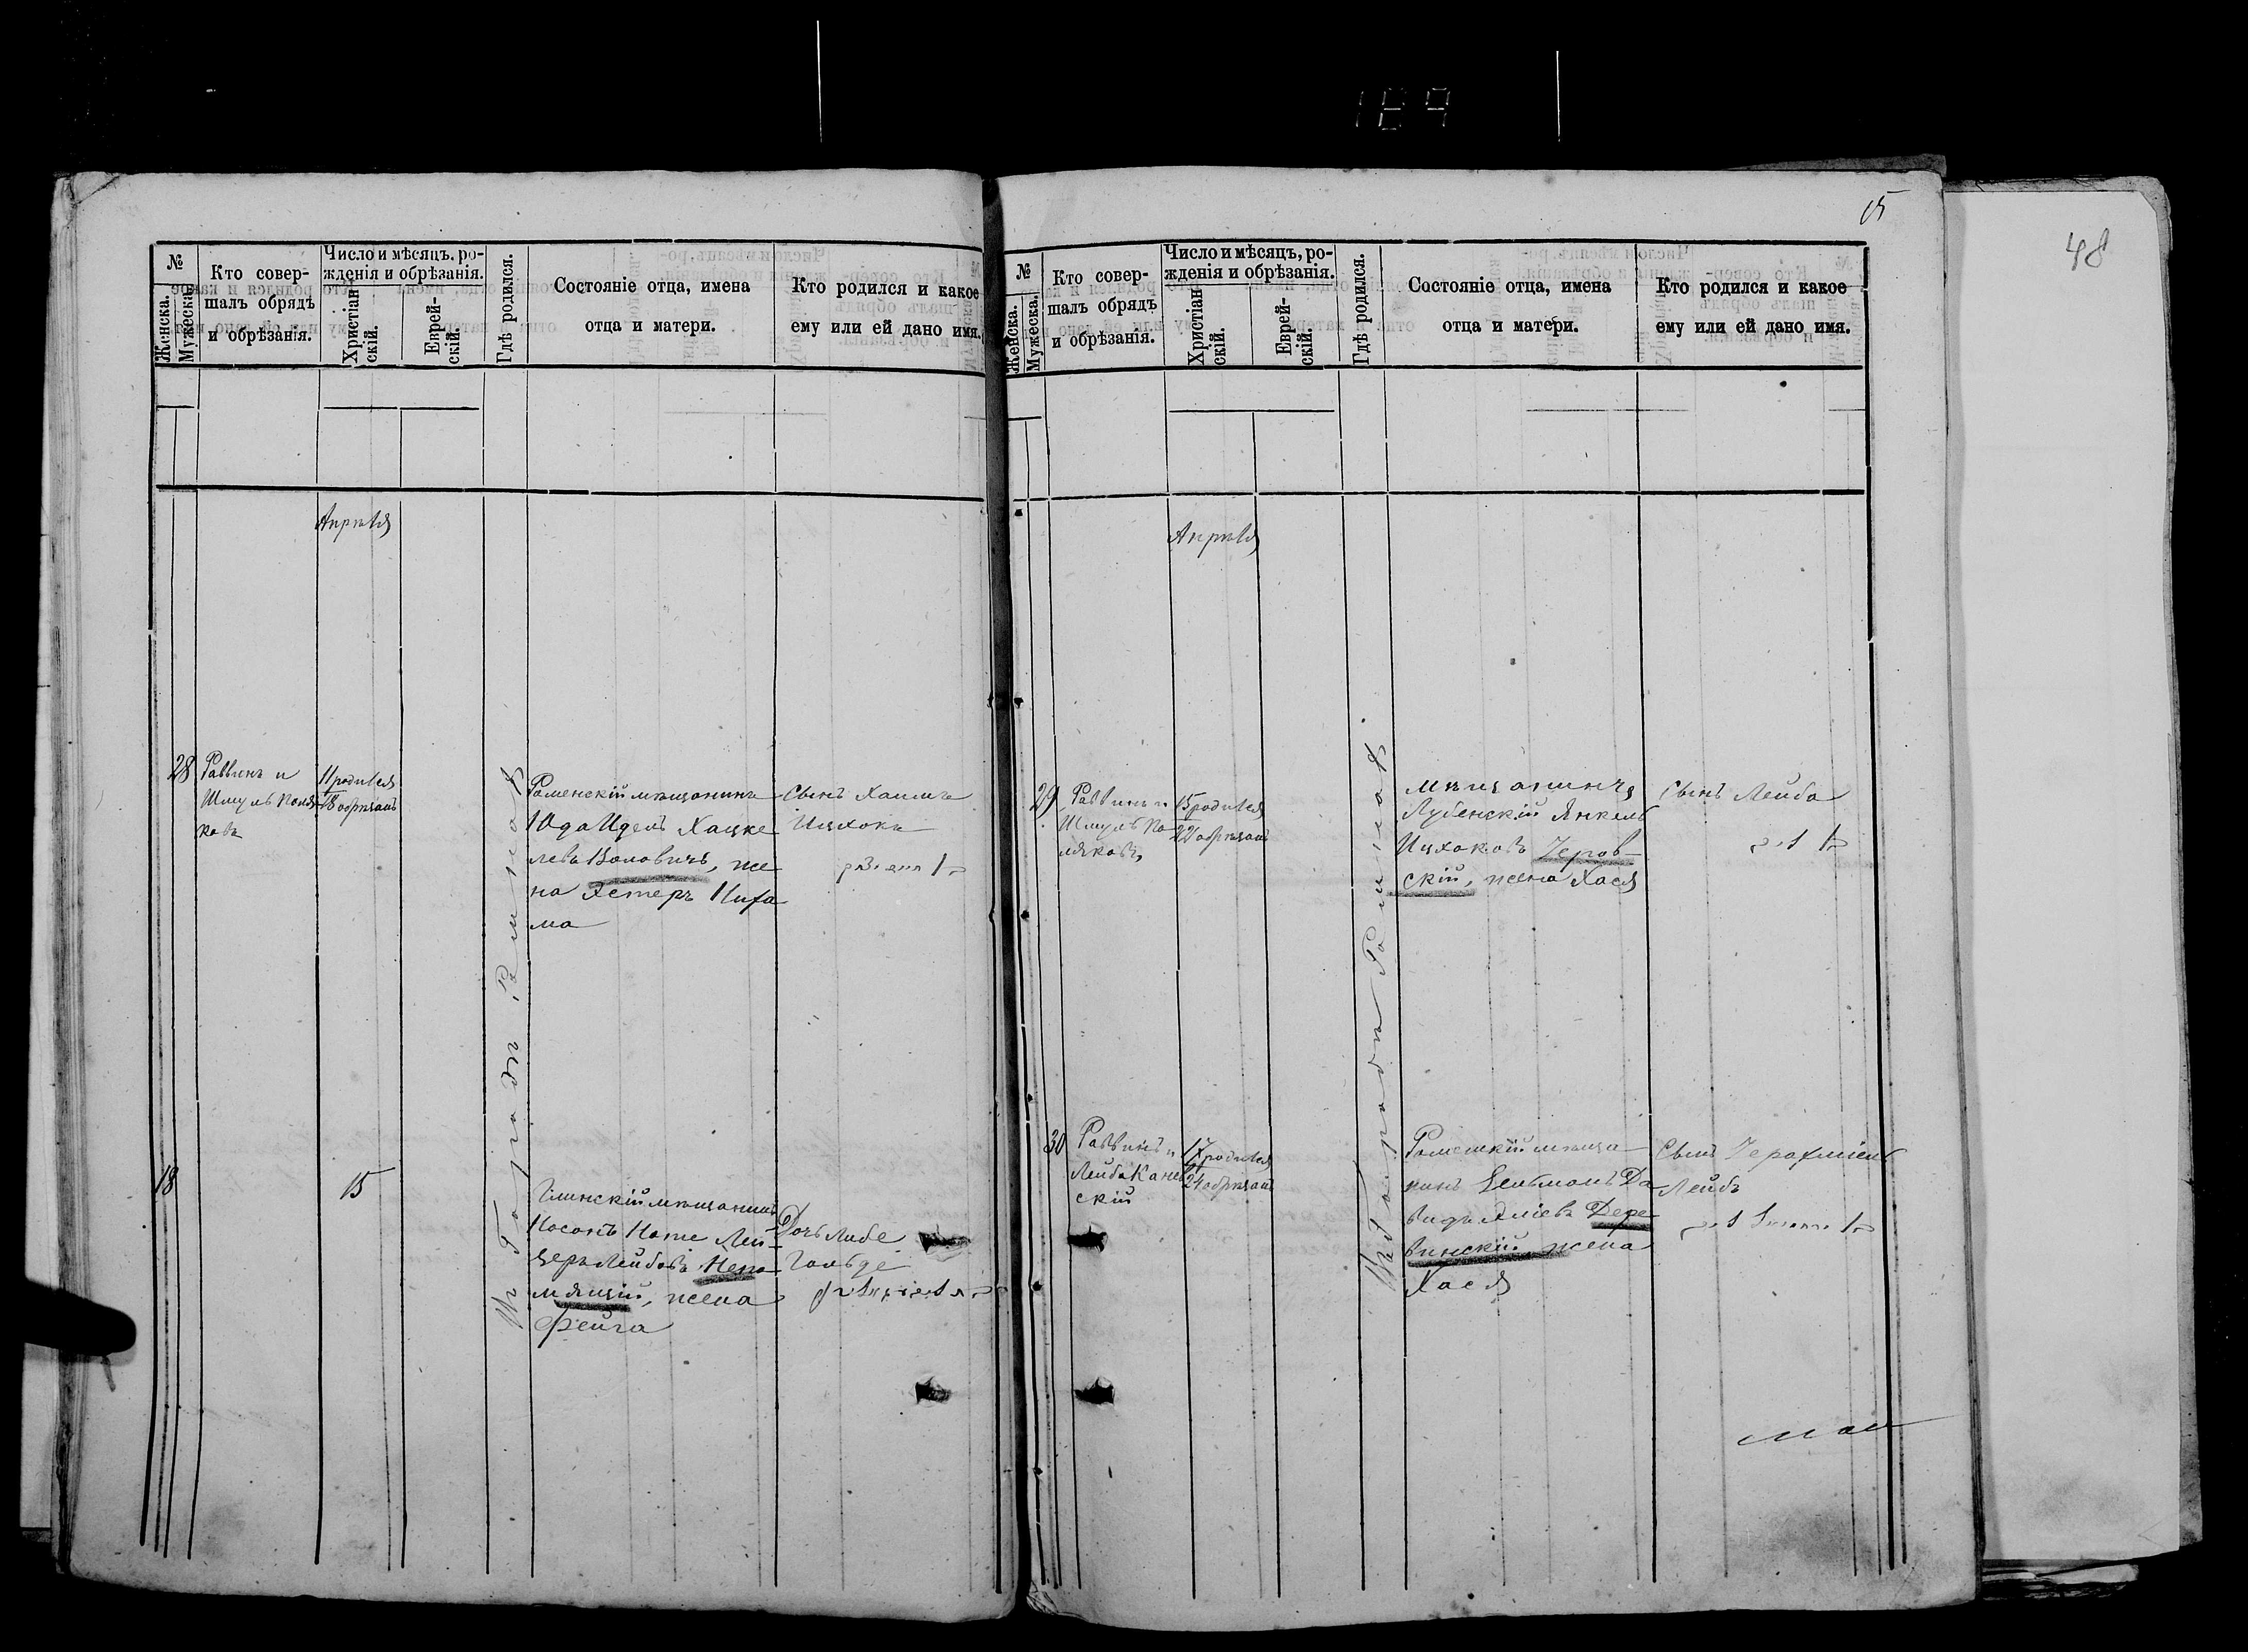 189
15
48
№
Женска.
Мужеска.
Кто совер-
шалъ обрядъ
и обрѣзанія.
Число и мѣсяцъ, ро-
жденія и обрѣзанія.
Христіан-
скій.
Еврей-
скій.
Гдѣ родился.
Состояніе отца, имена
отца и матери.
Кто родился и какое
ему или ей дано имя.
Апрѣля
28
Раввинъ и
Шмуль Поля
ковъ
11 родился
18 обрѣзанъ
Въ Городѣ Ромнахъ
Роменскій мѣщанинъ
Юда Идель Хацке
левъ Воловичъ, же
на Эстеръ Ниха
ма
Сынъ Хаимъ
Ицхокъ
18
15
Глинскій мѣщанинъ
Носонъ Ноте Лей
зеръ Лейбовъ Непо
мящій, жена
Фейга
Дочь Либе
Гольде
№
Женска.
Мужеска.
Кто совер-
шалъ обрядъ
и обрѣзанія.
Число и мѣсяцъ, ро-
жденія и обрѣзанія.
Христіан-
скій.
Еврей-
скій.
Гдѣ родился.
Состояніе отца, имена
отца и матери.
Кто родился и какое
ему или ей дано имя.
Апрѣля
29
Раввинъ и
Шмуль По
ляковъ
15 родился
22 обрѣзанъ
Въ Городѣ Ромнахъ
Мѣщанинъ
Лубенскій Янкель
Ицхоковъ Черов-
скій, жена Хася
Сынъ Лейба
30
Раввинъ и
Лейба Канев
скій
17 родился
24 обрѣзанъ
Роменскій мѣща
нинъ Зельманъ Да
видъ Эліевъ Дере
винскій жена
Хася
Сынъ Іерахміель
Лейбъ